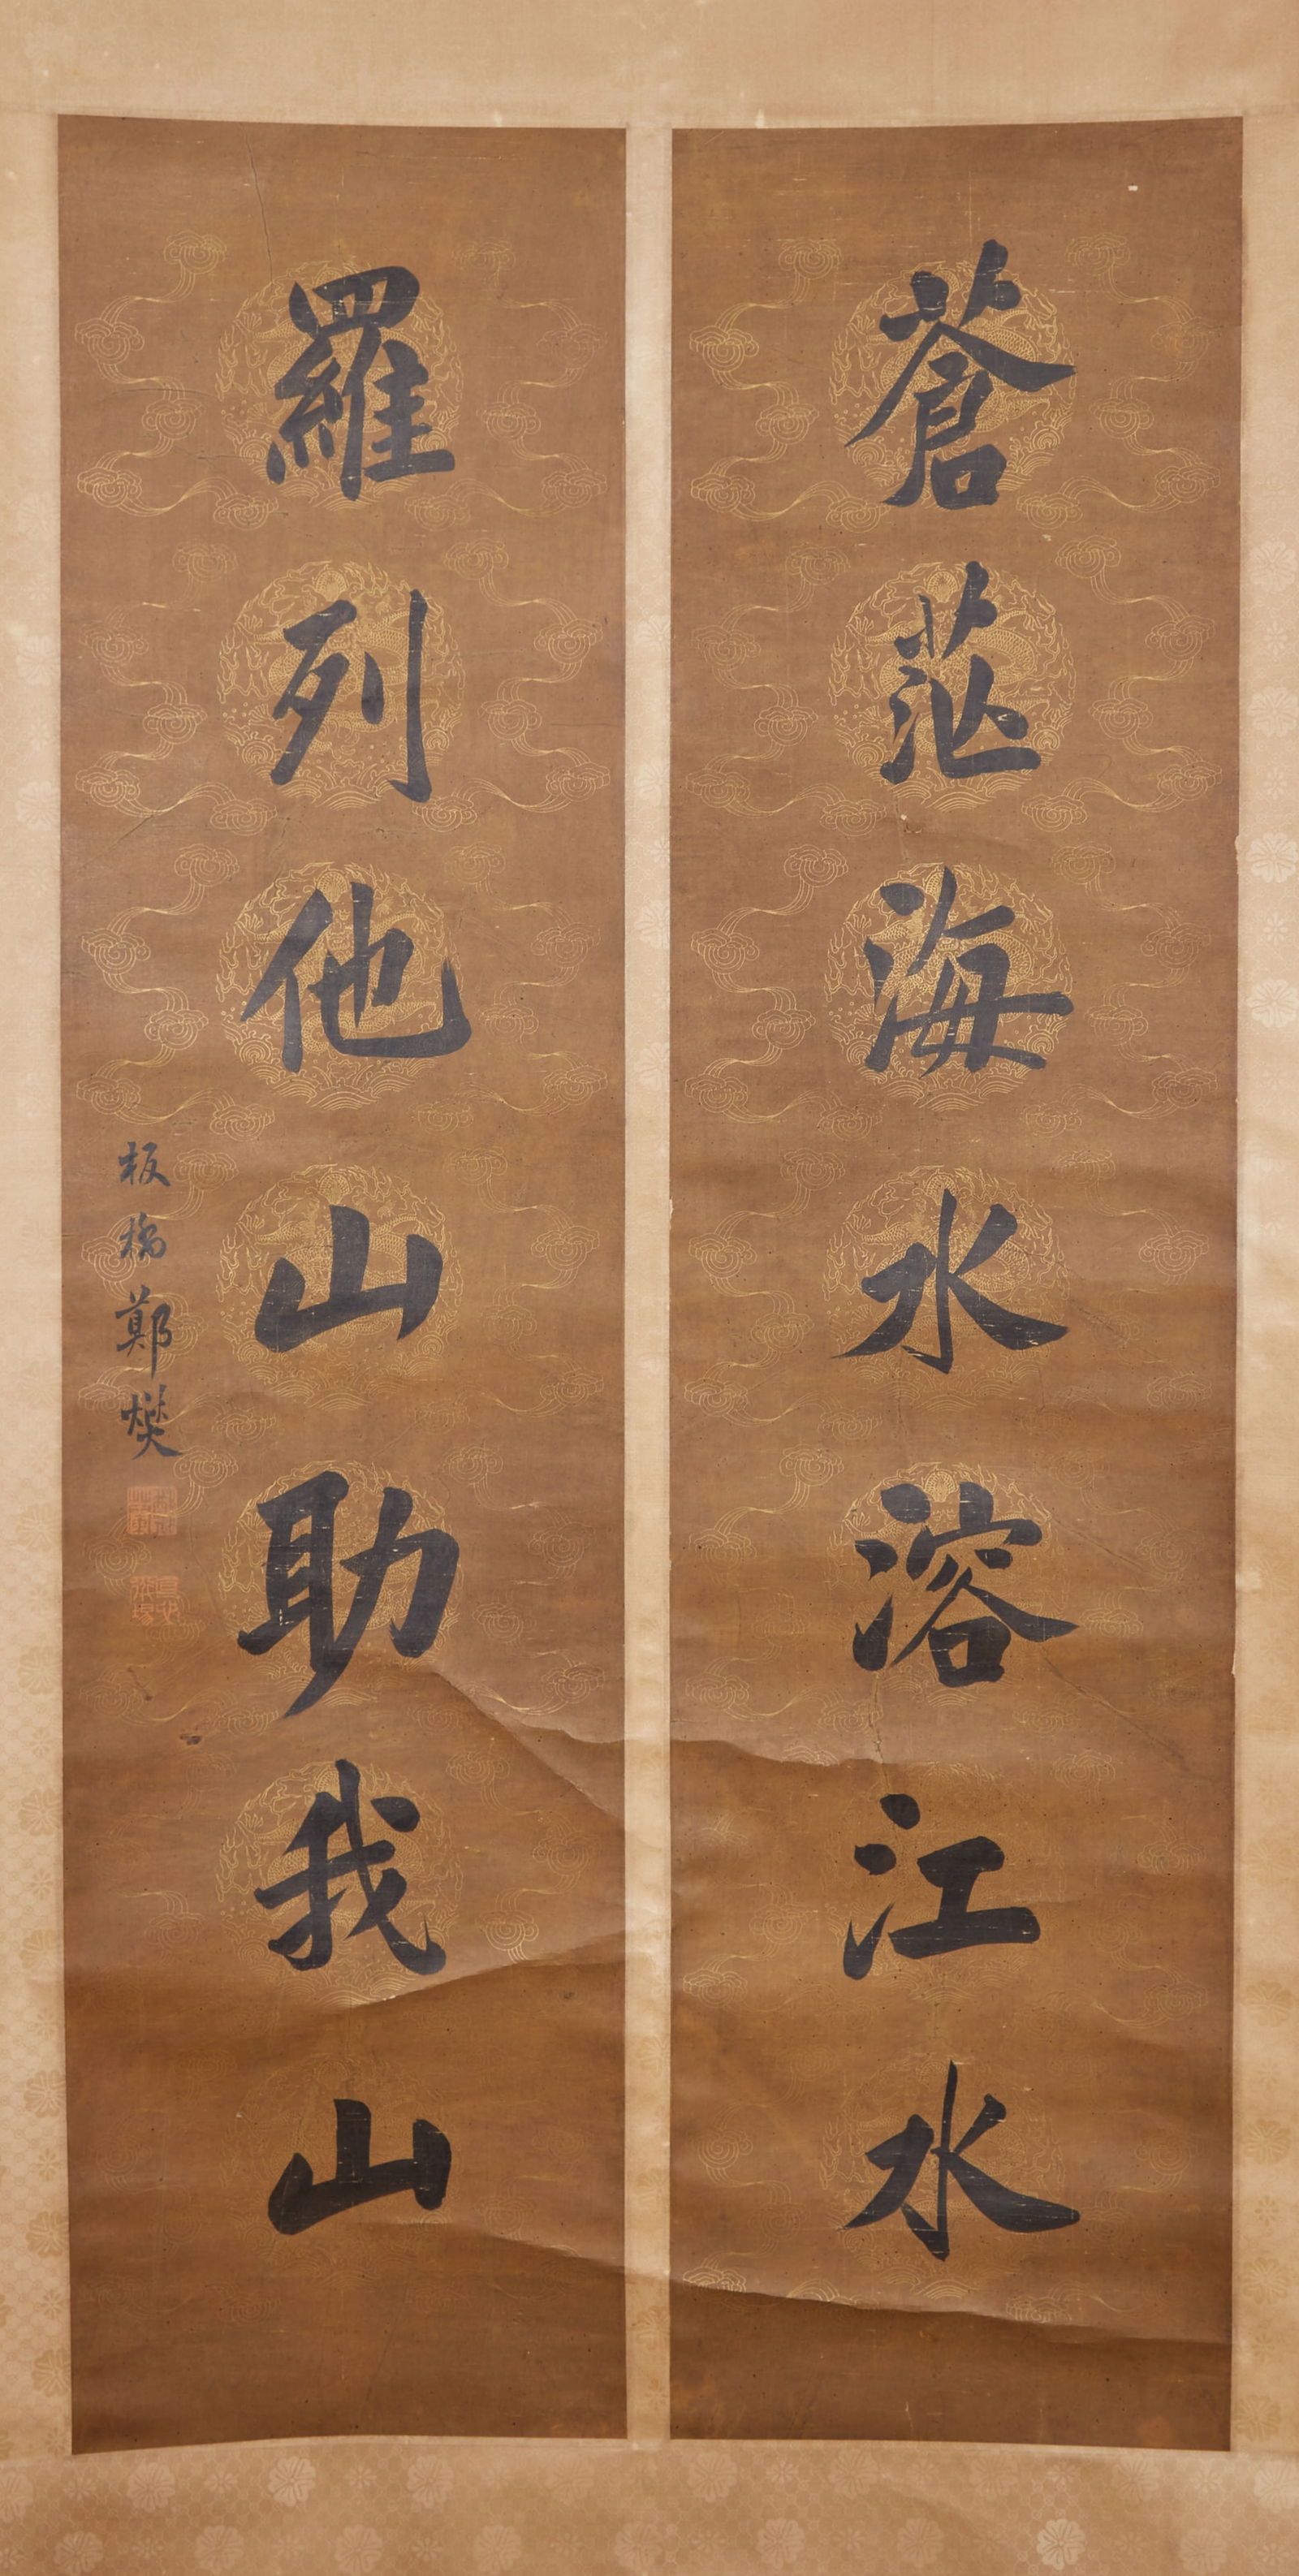 蒼茫海水溶江水
羅列他山助我山
板橋鄭燮